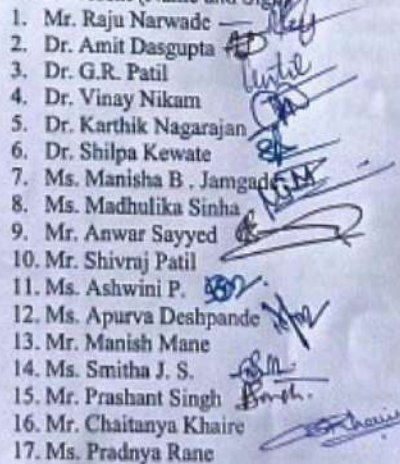 1. Mr. Raju Narwade
2. Dr. Amit Dasgupta
3. Dr. G.R. Patil
4. Dr. Vinay Nikam
5. Dr. Karthik Nagarajan
6. Dr. Shilpa Kewate
7. Ms. Manisha B . Jamgade
8. Ms. Madhulika Sinha
9. Mr. Anwar Sayyed
10. Mr. Shivraj Patil
11. Ms. Ashwini P.
12. Ms. Apurva Deshpande
13. Mr. Manish Mane
14. Ms. Smitha J. S.
15. Mr. Prashant Singh
16. Mr. Chaitanya Khaire
17. Ms. Pradnya Rane